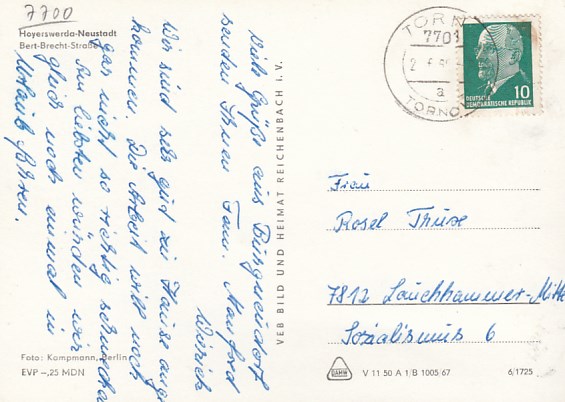 7700
Hoyerswerda-Neustadt
Bert-Brecht-Straße
Viele Grüße aus
senden Ihnen Fam. Manfred
Wir sind sehr gut zu Hause ange-
kommen. Die Arbeit will noch
gar nicht so richtig schmecken.
Am liebsten würden wir
gleich noch einmal in
Urlaub fahren.
Foto: Kampmann, Berlin
EVP –,25 MDN
VEB BILD UND HEIMAT REICHENBACH i. V.
TORNO
7701
a
TORNO
10
DEUTSCHE
DEMOKRATISCHE REPUBLIK
Frau
Rosel
7812 Lauchhammer-Mitte
Sozialismus 6
V 11 50 A 1/B 1005/67
6/1725